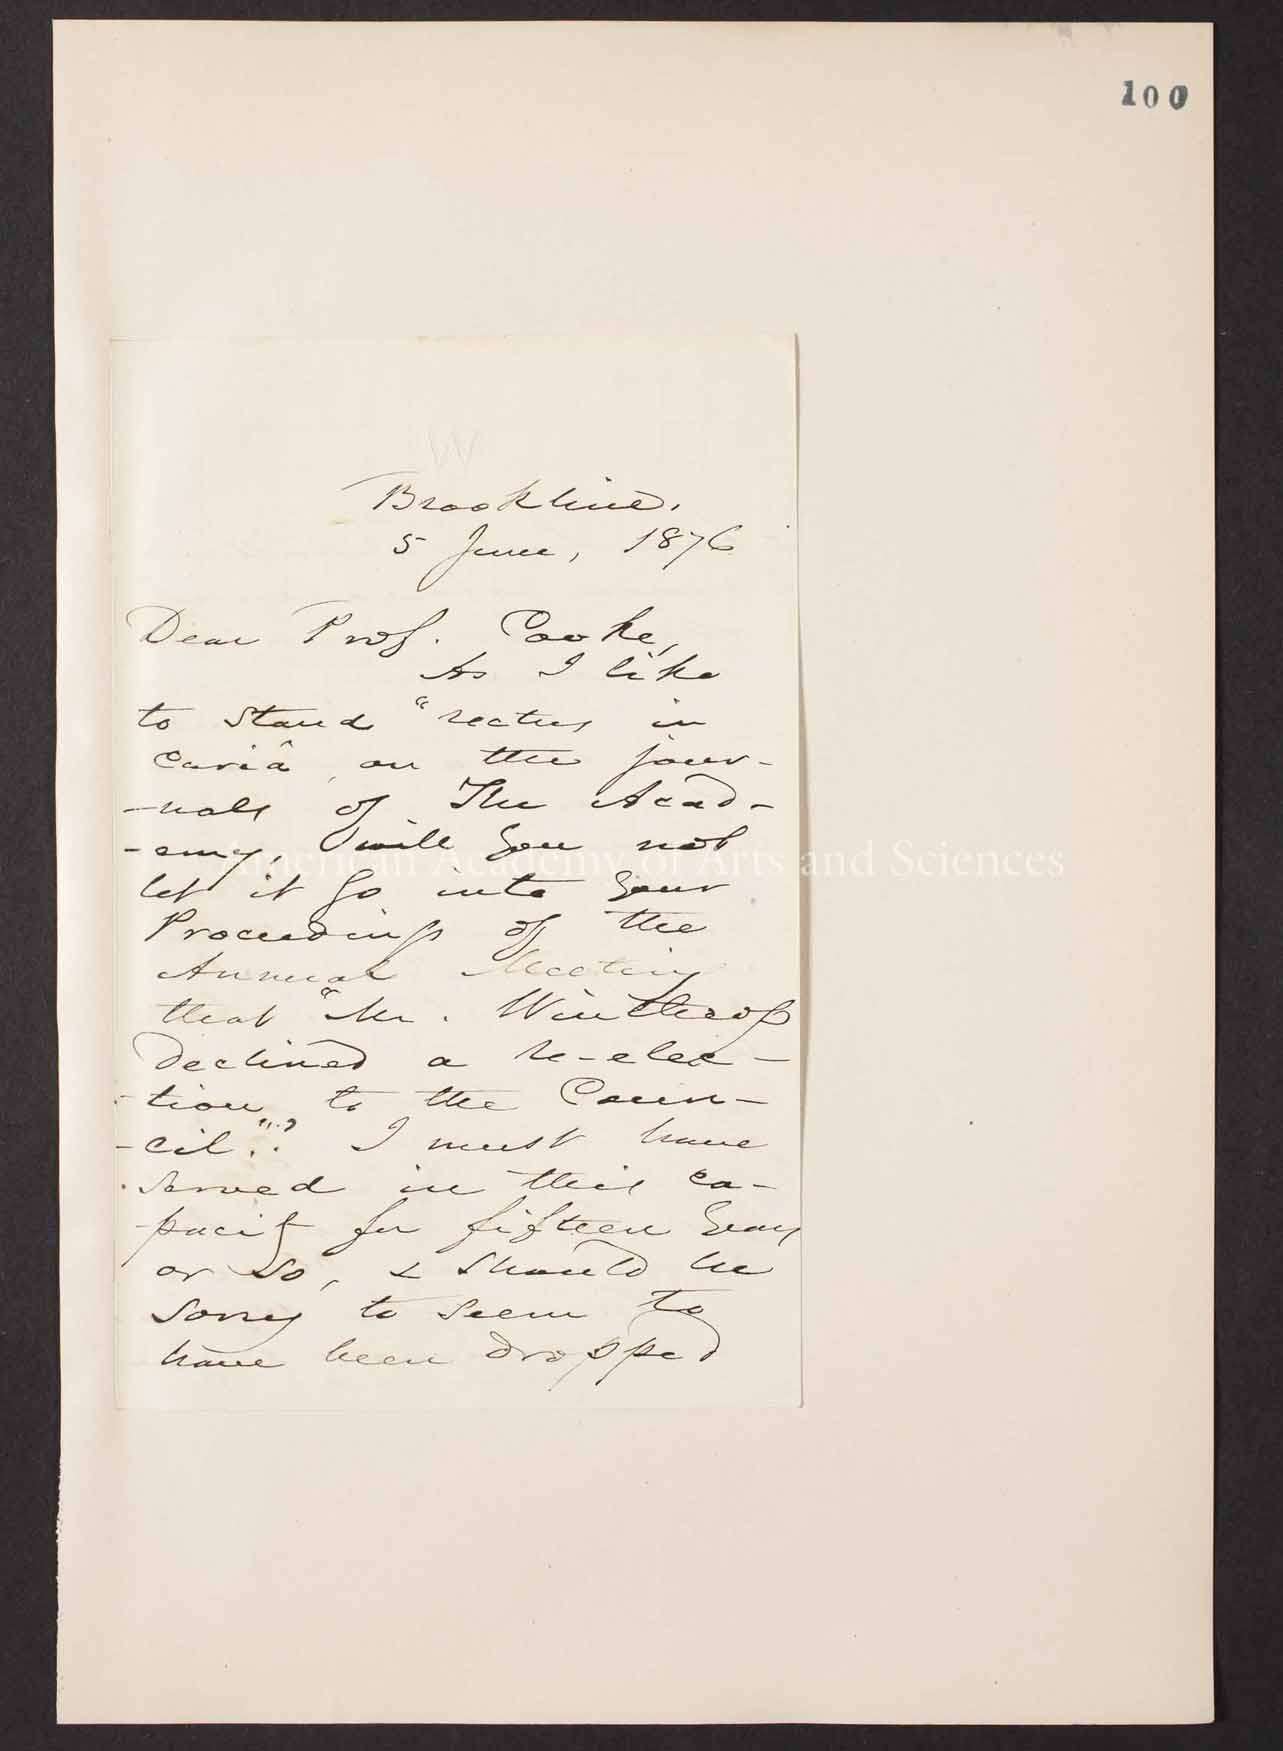 100
Brookline.
5 June, 1876
Dear Prof. Cooke,
As I like
to stand "rectus in
curiâ, on the jour-
-nals of The Acad-
-emy, will you not
let it go into your
Proceedings of the
Annual Meeting
that "Mr. Winthrop
declined a re-elec-
-tion to the Coun-
-cil."? I must have
served in this ca-
-pacity for fifteen years
or so, & should be
sorry to seem to
have been dropped
American Academy of Arts and Sciences